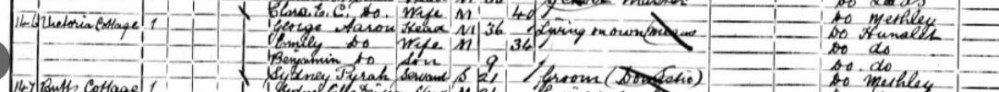 Clara E. C. Do. Wife M 40 Do Methley
146 Victoria Cottage 1 George Aaron Head M 36 Living on own means Do Hunslet
Emily Do Wife M 36 Do do
Benjamin Do Son 9 Do do
Sydney Tyrah Servant S 21 Groom (Domestic) Do Methley
147 Cottage 1